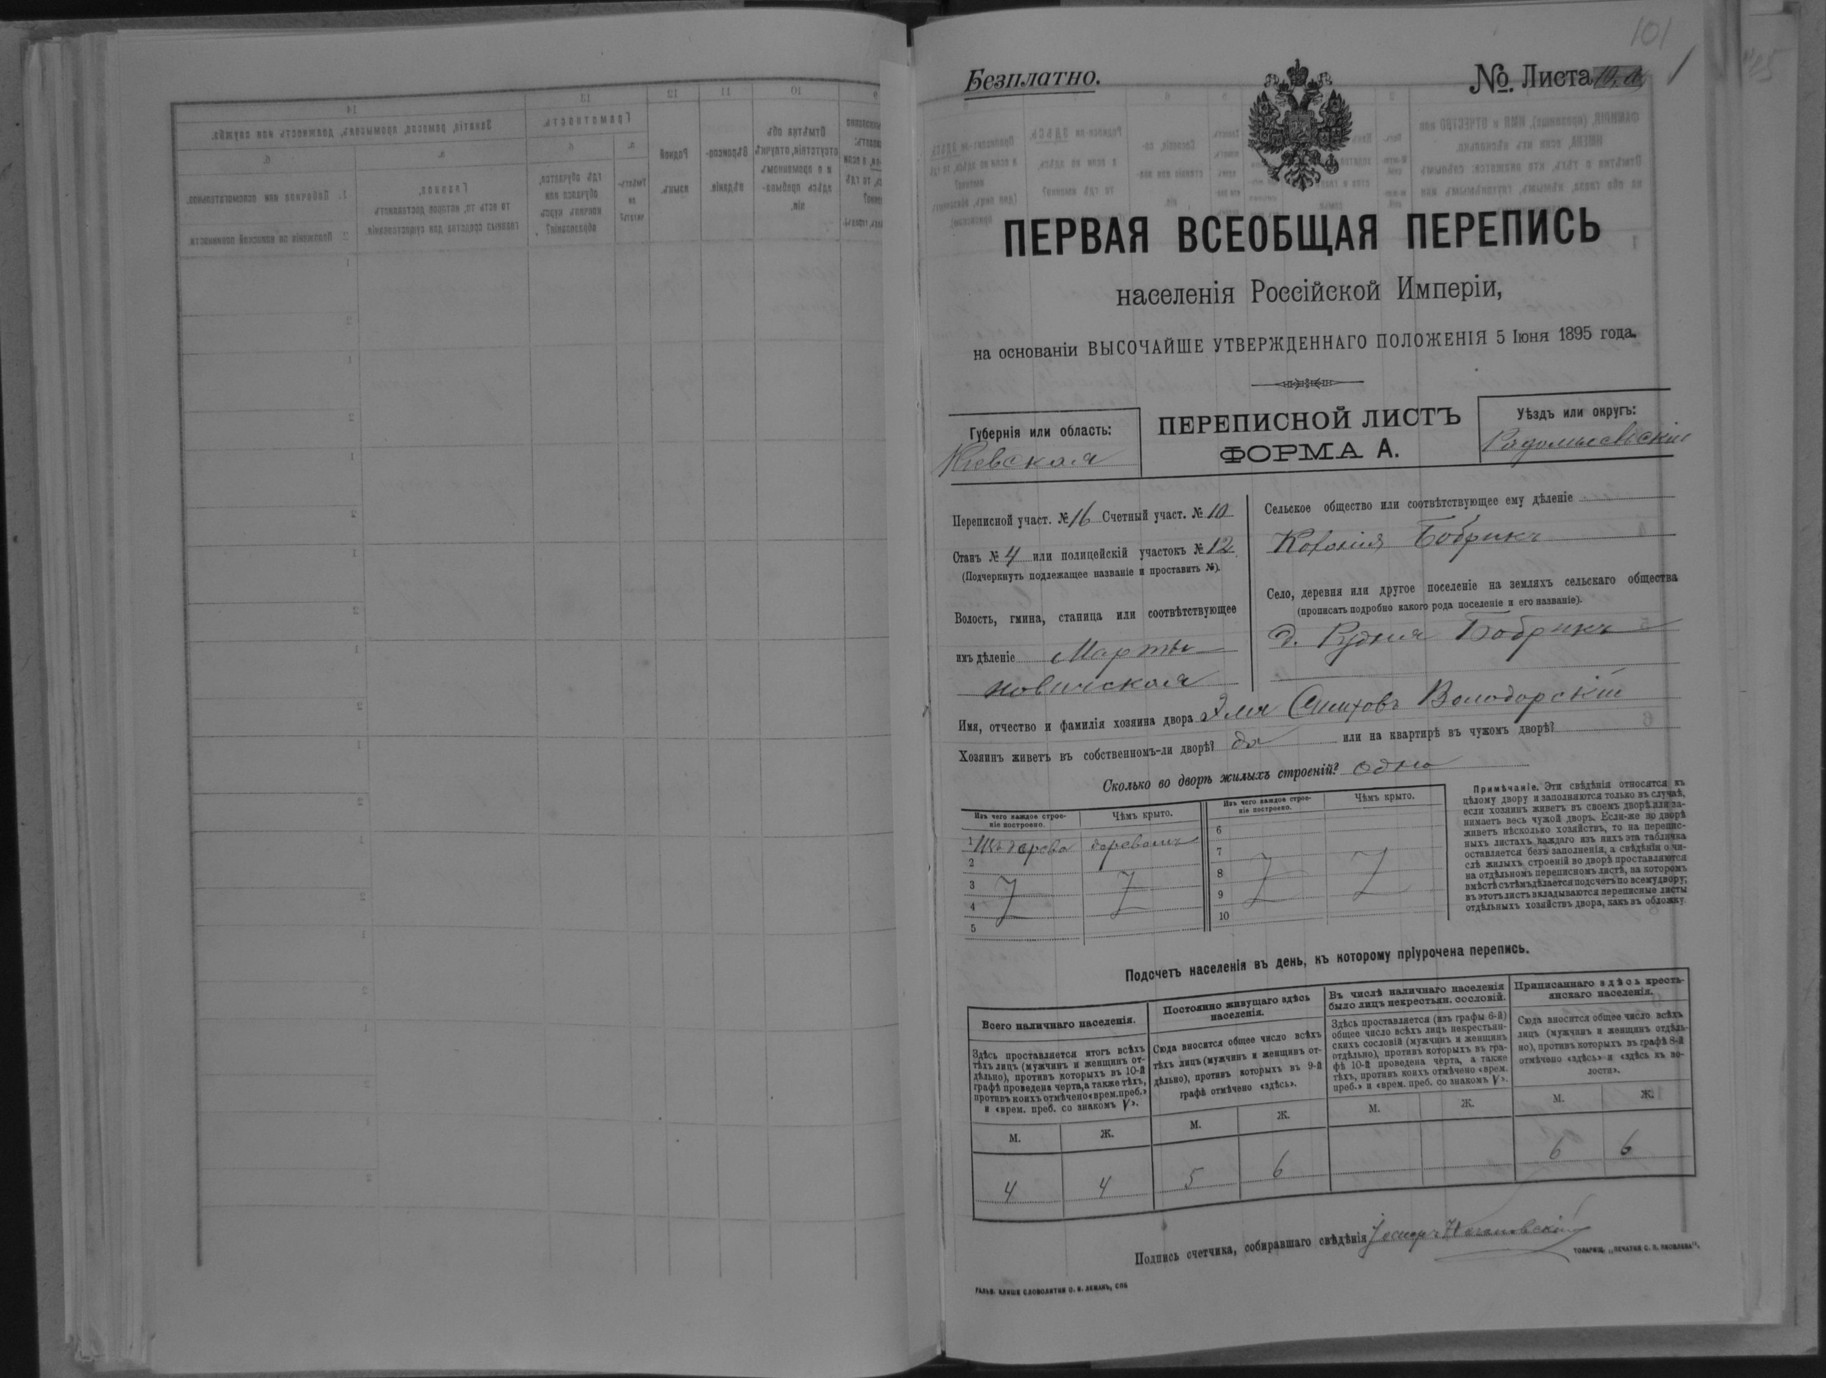 101
Безплатно.
№. Листа
ПЕРВАЯ ВСЕОБЩАЯ ПЕРЕПИСЬ
населенія Россійской Имперіи,
на основаніи ВЫСОЧАЙШЕ УТВЕРЖДЕННАГО ПОЛОЖЕНІЯ 5 Іюня 1895 года.
Губернія или область:
Кіевская
ПЕРЕПИСНОЙ ЛИСТЪ
ФОРМА А.
Уѣздъ или округъ:
Радомысльскій
Переписной участ. № 16 Счетный участ. № 10
Станъ № 4 или полицейскій участокъ № 12
(Подчеркнуть подлежащее названіе и проставить №).
Волость, гмина, станица или соотвѣтствующее
имъ дѣленіе Марты
новичская
Сельское общество или соотвѣтствующее ему дѣленіе
Колонія Бобрикъ
Село, деревня или другое поселеніе на земляхъ сельскаго общества
(прописать подробно какого рода поселеніе и его названіе).
д. Рудня Бобрикъ
Имя, отчество и фамилія хозяина двора Володорскій
Хозяинъ живетъ въ собственномъ-ли дворѣ? да или на квартирѣ въ чужомъ дворѣ?
Сколько во дворѣ жилыхъ строеній? одно
Изъ чего каждое строе-
ніе построено.
Чѣмъ крыто.
Изъ чего каждое строе-
ніе построено.
Чѣмъ крыто.
1 Изъ дерева деревомъ
2
3
4
5
6
7
8
9
10
Примѣчаніе. Эти свѣдѣнія относятся къ
цѣлому двору и заполняются только въ случаѣ,
если хозяинъ живетъ въ своемъ дворѣ или за-
нимаетъ весь чужой дворъ. Если-же во дворѣ
живетъ нѣсколько хозяйствъ, то на перепис-
ныхъ листахъ каждаго изъ нихъ эта табличка
оставляется безъ заполненія, а свѣдѣнія о чи-
слѣ жилыхъ строеній во дворѣ проставляются
на отдѣльномъ переписномъ листѣ, на которомъ
вмѣстѣ съ тѣмъ дѣлается подсчетъ по всему двору;
въ этотъ листъ вкладываются переписные листы
отдѣльныхъ хозяйствъ двора, какъ въ обложку.
Подсчетъ населенія въ день, къ которому пріурочена перепись.
Всего наличнаго населенія.
Здѣсь проставляется итогъ всѣхъ
тѣхъ лицъ (мужчинъ и женщинъ от-
дѣльно), противъ которыхъ въ 10-й
графѣ проведена черта, а также тѣхъ,
противъ коихъ отмѣчено «врем. преб.»
и «врем. преб. со знакомъ V».
М.
Ж.
4
4
Постоянно живущаго здѣсь
населенія.
Сюда вносится общее число всѣхъ
тѣхъ лицъ (мужчинъ и женщинъ от-
дѣльно), противъ которыхъ въ 9-й
графѣ отмѣчено «здѣсь».
М.
Ж.
5
6
Въ числѣ наличнаго населенія
было лицъ некрестьян. сословій.
Здѣсь проставляется (изъ графы 6-й)
общее число всѣхъ лицъ некрестьян-
скихъ сословій (мужчинъ и женщинъ
отдѣльно), противъ которыхъ въ гра-
фѣ 10-й проведена черта, а также
тѣхъ, противъ коихъ отмѣчено «врем.
преб.» и «врем. преб. со знакомъ V».
М.
Ж.
Приписаннаго здѣсь кресть-
янскаго населенія.
Сюда вносится общее число всѣхъ
лицъ (мужчинъ и женщинъ отдѣль-
но), противъ которыхъ въ графѣ 8-й
отмѣчено «здѣсь» и «здѣсь къ во-
лости».
М.
Ж.
6
6
Подпись счетчика, собиравшаго свѣдѣнія
ГАЛЬВ. КЛИШЕ СЛОВОЛИТНИ О. И. ЛЕМАНЪ, СПБ
ТОВАРИЩ. „ПЕЧАТНЯ С. П. ЯКОВЛЕВА“.